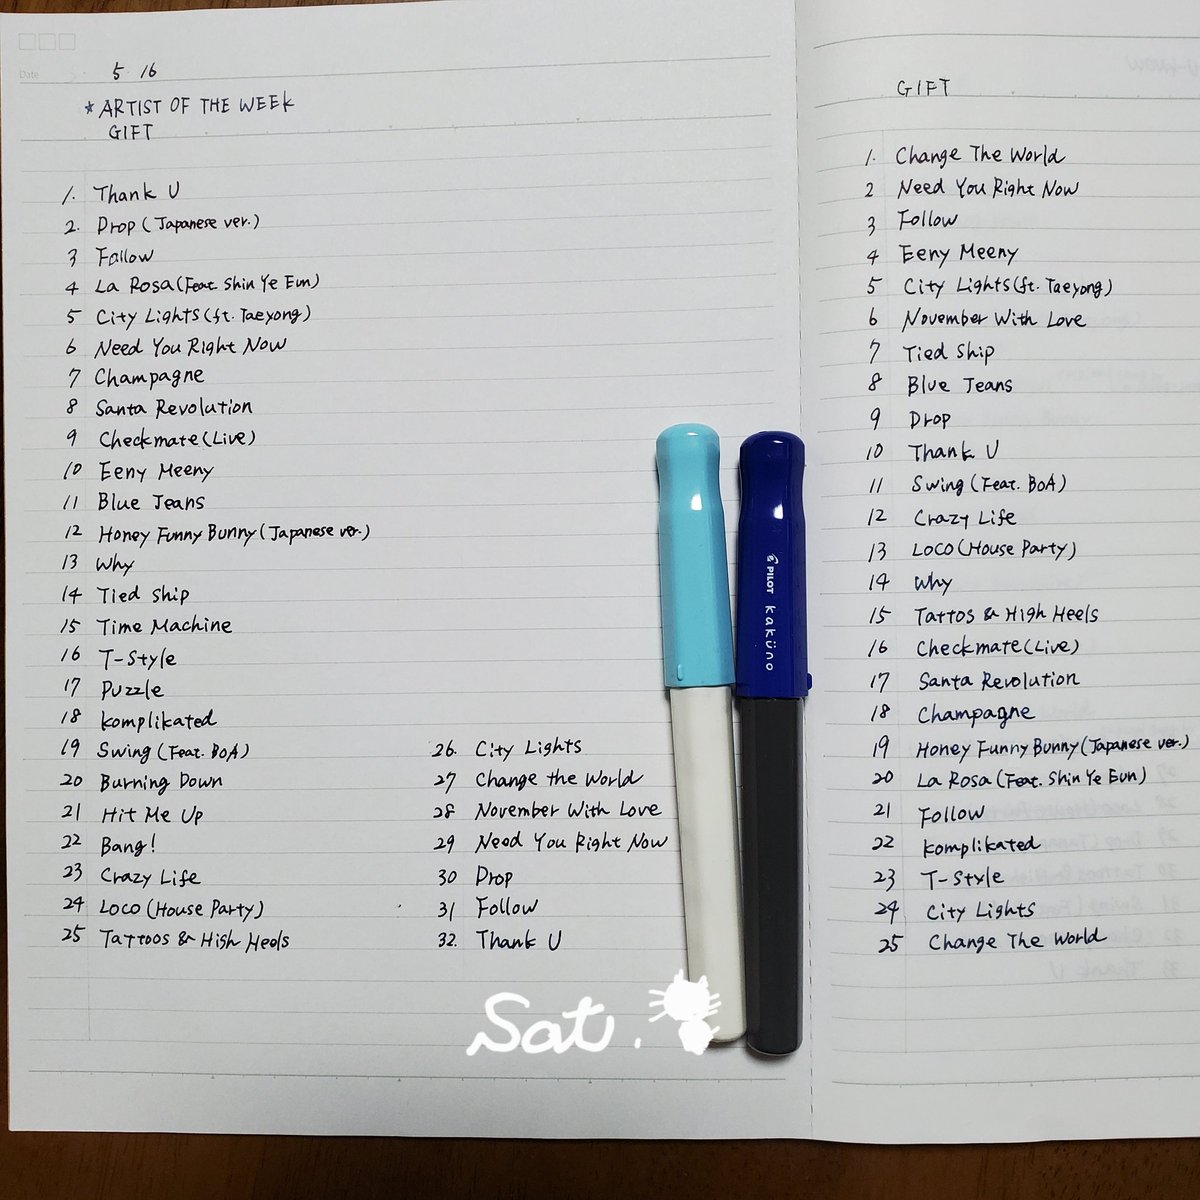 Date 5 16
* ARTIST OF THE WEEK
GIFT
1. Thank U
2. Drop (Japanese ver.)
3 Follow
4 La Rosa (Feat. Shin Ye Eun)
5 City Lights (ft. Taeyong)
6 Need You Right Now
7 Champagne
8 Santa Revolution
9 Checkmate (Live)
10 Eeny Meeny
11 Blue Jeans
12 Honey Funny Bunny (Japanese ver.)
13 Why
14 Tied Ship
15 Time Machine
16 T-Style
17 Puzzle
18 Komplikated
19 Swing (Feat. BoA)
20 Burning Down
21 Hit Me Up
22 Bang!
23 Crazy Life
24 Loco (House Party)
25 Tattoos & High Heels
26. City Lights
27 Change the World
28 November With Love
29 Need You Right Now
30 Drop
31 Follow
32. Thank U
Sat.
PILOT kaküno
GIFT
1. Change The World
2 Need You Right Now
3 Follow
4 Eeny Meeny
5 City Lights (ft. Taeyong)
6 November With Love
7 Tied Ship
8 Blue Jeans
9 Drop
10 Thank U
11 Swing (Feat. BoA)
12 Crazy Life
13 Loco (House Party)
14 Why
15 Tattos & High Heels
16 Checkmate (Live)
17 Santa Revolution
18 Champagne
19 Honey Funny Bunny (Japanese ver.)
20 La Rosa (Feat. Shin Ye Eun)
21 Follow
22 Komplikated
23 T-Style
24 City Lights
25 Change The World